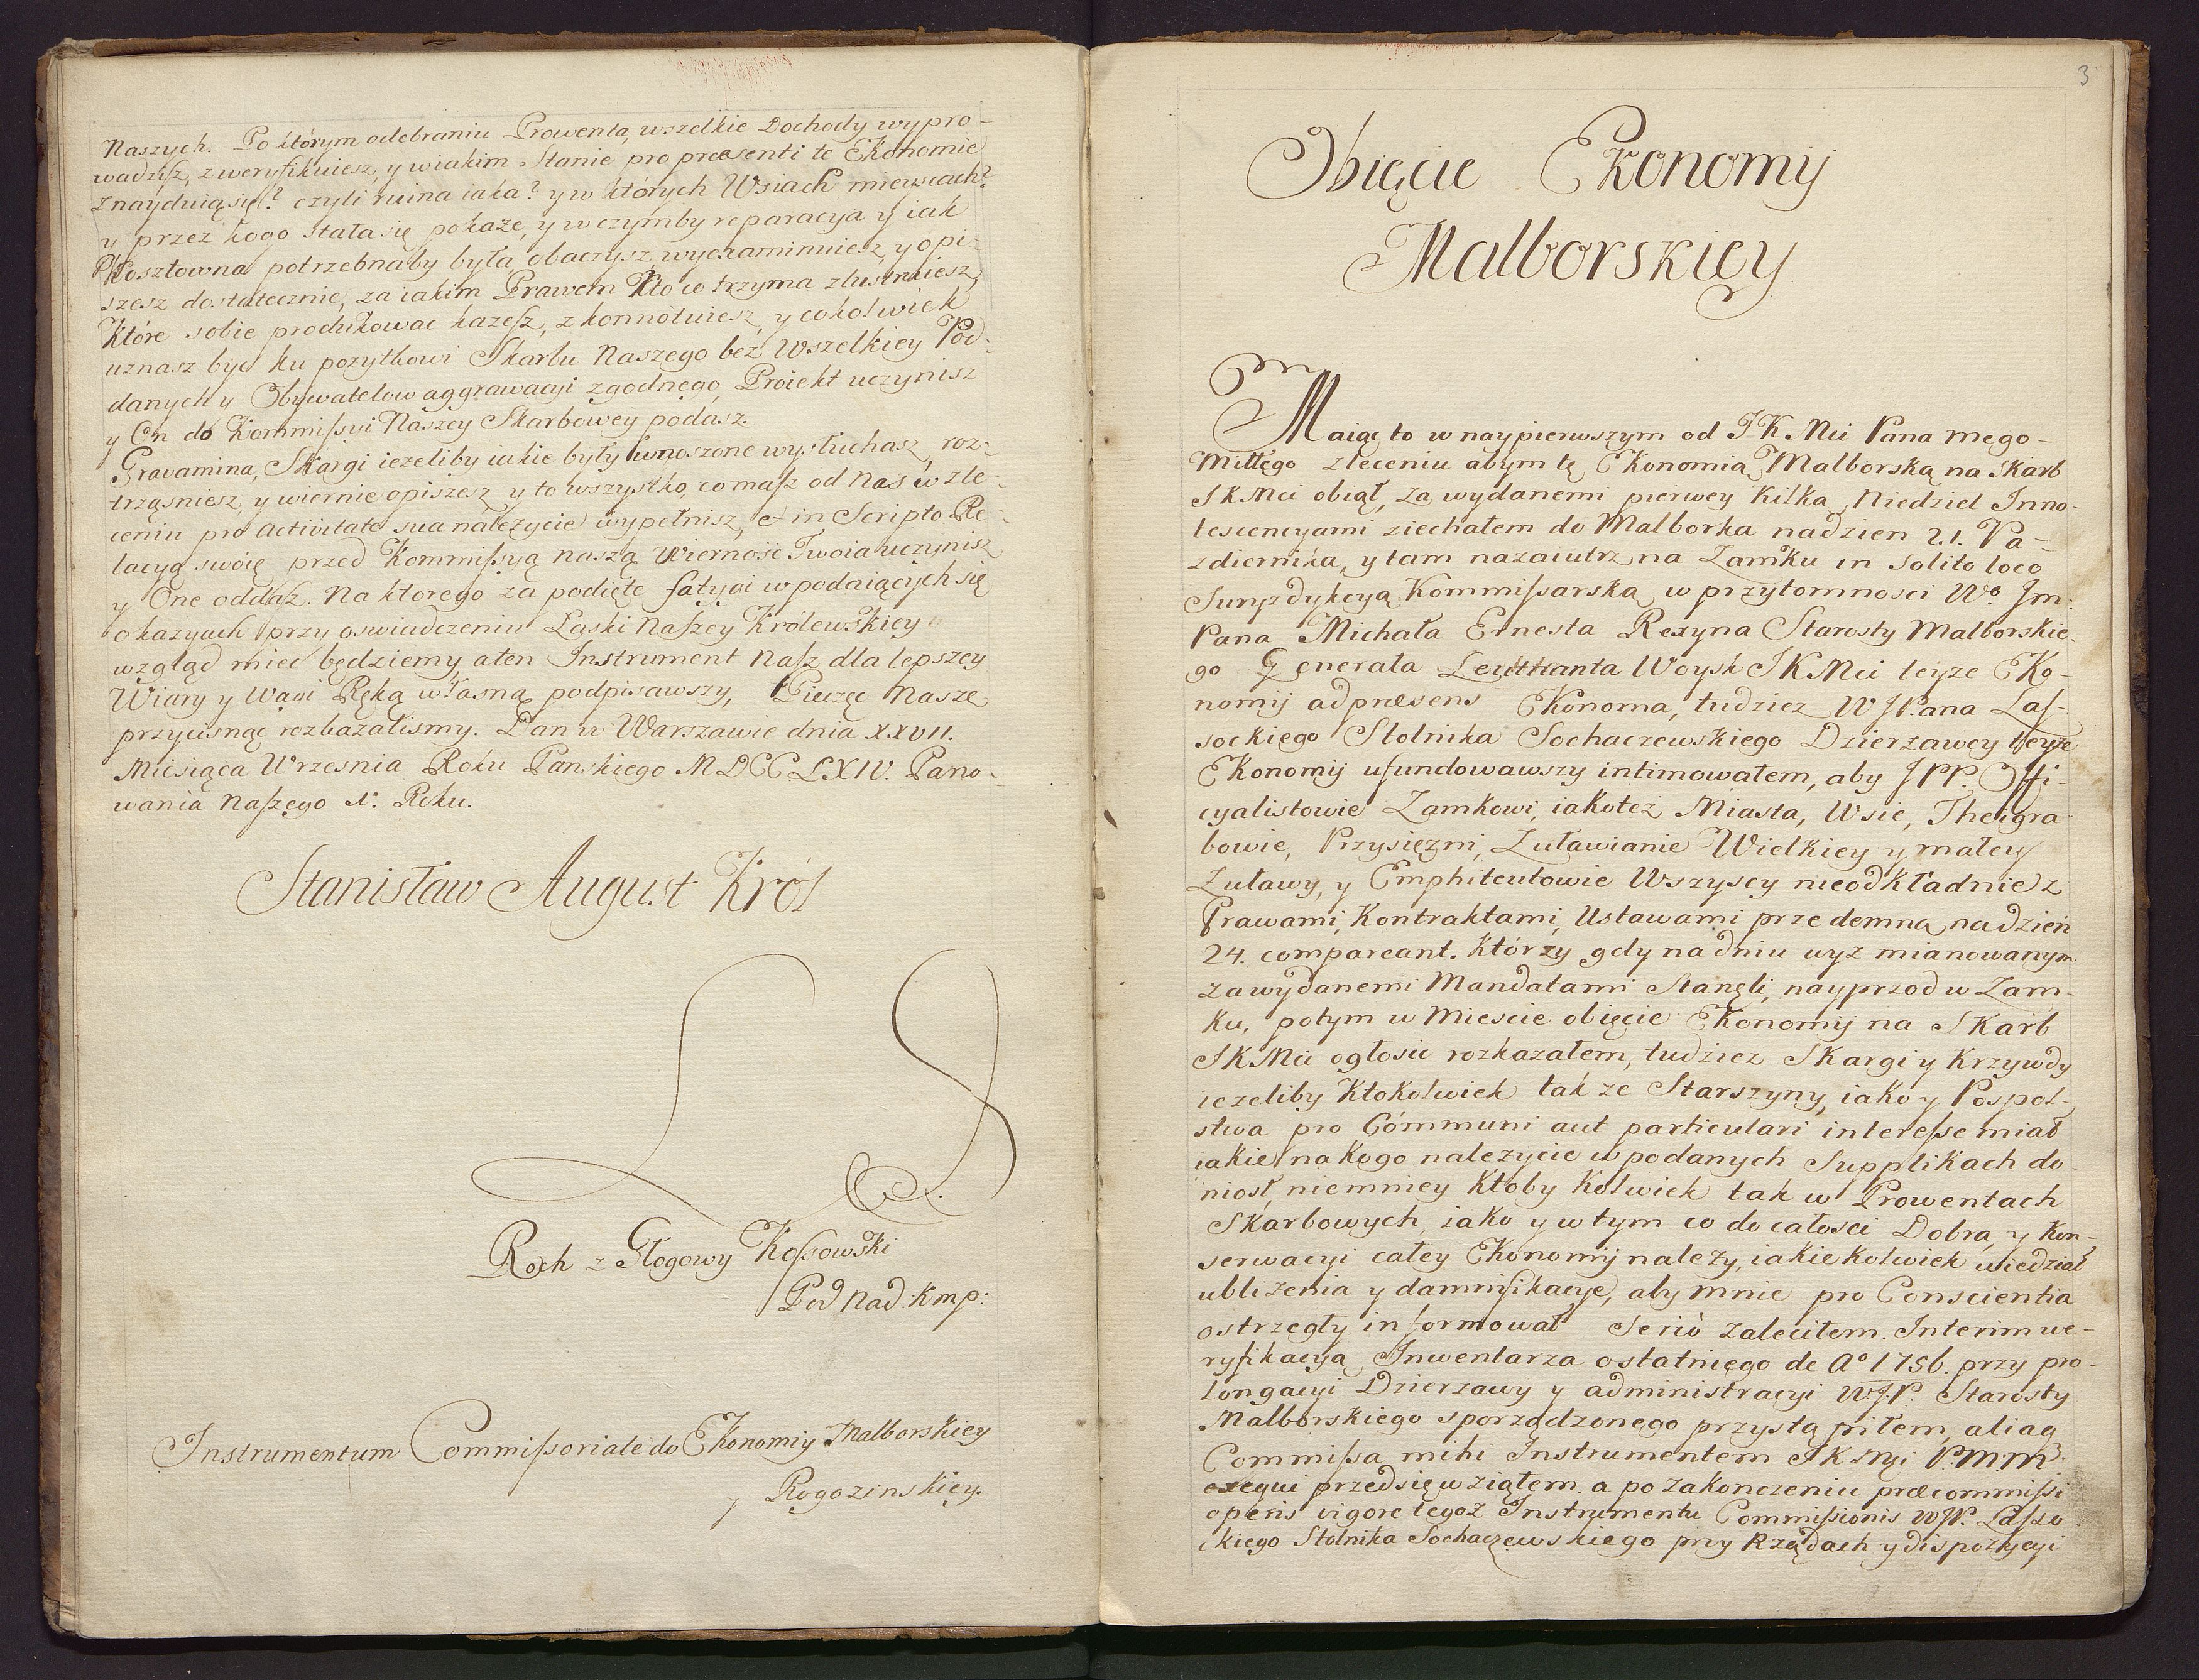 Naszych. Po którym odebraniu Prowentą, wszelkie Dochody wypro-
wadzisz, zweryfikuiesz, y wiakim Stanie pro præsenti te Ekonomie
znayduią się? czyli ruina iaka? y w których Wsiach mieyscach?
y przez kogo stała się pokaże, y w czymby reparacya y iak
Kosztowna potrzebna by była obaczysz, wyexaminuiesz, y opi-
szesz dostatecznie, za iakim Prawem Kto co trzyma zlustruiesz,
Które sobie produkować każesz, zkonnotuiesz, y cokolwiek
uznasz być ku pożytkowi Skarbu Naszego bez Wszelkiey Pod-
danych y Obywatelow aggrawacyi zgodnego, Proiekt uczynisz
y On do Kommissyi Naszey Skarbowey podasz.
Gravamina, Skargi ieżeliby iakie były wnoszone wysłuchasz, roz-
trząsniesz, y wiernie opiszesz y to wszystko, co masz od Nas w zle-
ceniu pro activitate sua należycie wypełnisz, et in Scripto Re-
lacyą swoię przed Kommissyą naszą Wierność Twoia uczynisz
y One oddasz. Na ktorego za podięte fatygi w podaiących się
okazyach przy oswiadczeniu Łaski Naszey Królewskiey
wzgląd mieć będziemy, a ten Instrument Nasz dla lepszey
Wiary y Wagi Ręką własną podpisawszy, Pieczęc Naszę
przycisnąc rozkazalismy. Dan w Warszawie dnia XXVII.
Miesiąca Wrzesnia Roku Panskiego MDCCLXIV. Pano-
wania Naszego 1. Roku.
Stanisław August Król
L S
Roch z Głogowy Kossowski
Pod Nad: Kmp:
Instrumentum Commissoriale do Ekonomiy Malborskiey
y Rogozinskiey.
3
Obięcie Ekonomij
Malborskiey
Maiąc to w naypierwszym od J K. Mci Pana mego
Miłłego zleceniu abym tę Ekonomią Malborską na Skarb
J K Mci obiął, za wydanemi pierwey Kilką Niedziel Inno-
tescencyami ziechałem do Malborka na dzien 21. Pa-
zdiernika, y tam nazaiutrz na Zamku in Solito loco
Juryzdykcyą Kommissarską w przytomnosci Wo. Jm:
Pana Michała Ernesta Rexyna Starosty Malborskie-
go Generała Leuthnanta Woysk J K Mci teyże Eko-
nomij ad præsens Ekonoma, tudziez W JPana Las-
sockiego Stolnika Sochaczewskiego Dzierzawcy teyże
Ekonomij ufundowawszy intimowałem, aby J PP. Offi-
cyalistowie Zamkowi, iakoteż Miasta, Wsie, Theigra-
bowie, Przysięzni, Zuławianie Wielkiey y małey
Zuławy, y Emphiteutowie Wszyscy nieodkładnie z
Prawami, Kontraktami, Ustawami przedemną na dzień
24. compareant. Którzy gdy na dniu wyz mianowanym
za wydanemi Mandatami Stanęli, nayprzod w Zam-
ku, potym w Miescie obięcie Ekonomij na Skarb
J K Mci ogłosić rozkazałem, tudzież Skargi y Krzywdy
iezeliby Ktokolwiek tak ze Starszyny, iako y Pospol-
stwa pro Communi aut particulari interesse miał
iakie na Kogo nalezycie w podanych Supplikach do
niosł, niemniey Ktoby Kolwiek tak w Prowentach
Skarbowych, iako y w tym co do całosci Dobra, y Kon-
serwacyi całey Ekonomij nalezy, iakiekolwiek wiedział
ubliżenia y damnifikacye, aby mnie pro Conscientia
ostrzegły informował Seriò zaleciłem. Interim we-
ryfikacyą Inwentarza ostatniego de Ao. 1756. przy pro-
longacyi Dzierzawy y administracyi W.J.P. Starosty
Malborskiego sporządzonego przystąpiłem, aliaq
Commissa mihi Instrumentem J K Mci P.M.M.
exequi przedsięwziąłem. a po zakonczeniu præcommissi
operis vigore tegoż Instrumentu Commissionis WJP. Lasso
ckiego Stolnika Sochaczewskiego przy Rządach y dispozycyi